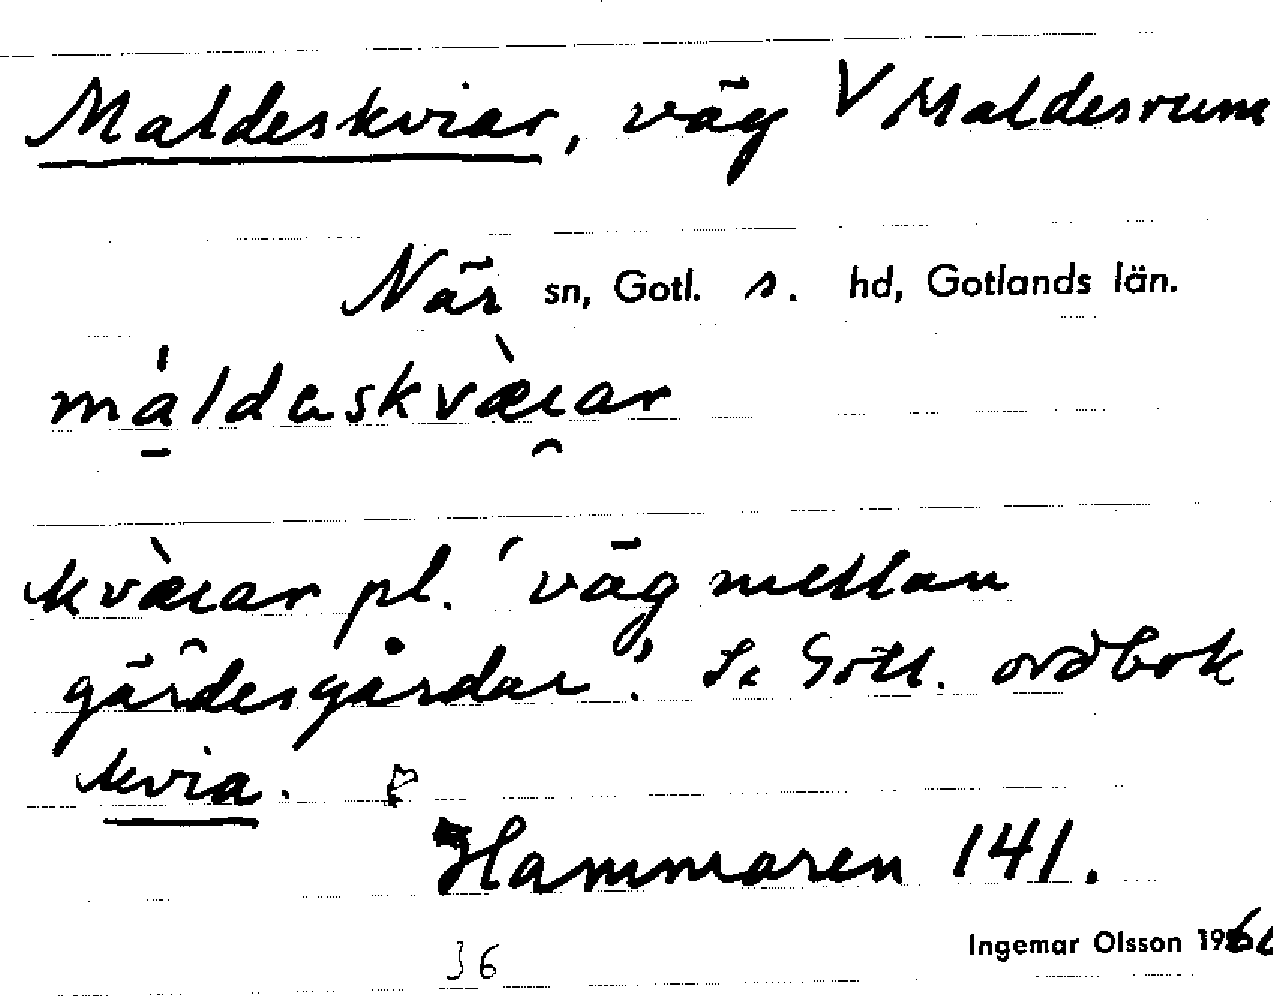 Maldeskviar, väg V Maldesrum
När sn, Gotl. s. hd, Gotlands län.
máldaskvæ̀ıar
kvæ̀ıar pl. 'väg mellan
gärdesgårdar'. Se Gotl. ordbok
kvia.
Hammaren 141.
36
Ingemar Olsson 196